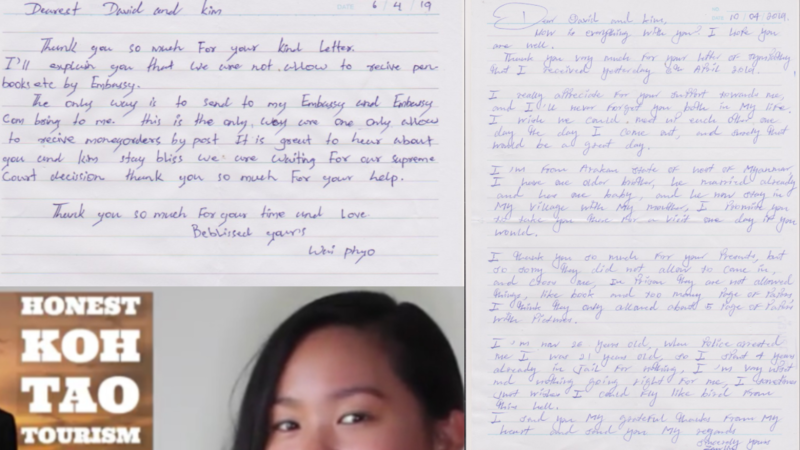 Dearest David and Kim
DATE 6/4/19
Thank you so much For your kind letter.
I'll explain you that we are not allow to recive pen
books etc by Embassy.
The only way is to send to my Embassy and Embassy
Can bring to me. this is the only way we are only allow
to recive moneyorders by post It is great to hear about
you and Kim stay bliss we are waiting For our supreme
Court decision thank you so much For your help.
Thank you so much For your time and love
Beblissed your's
Wai phyo
HONEST
KOH
TAO
TOURISM
10/04/2019.
Dear David and Kim,
How is everything with you? I hope you
are well.
Thank you very much for your letter of
that I received yesterday 9th April 2019.
I really appreciate for your support towards me,
and I'll never forget you both in My life.
I wish we could meet us each other one
day the day I come out, and surely that
would be a great day.
I'm From Arakan state of west of Myanmar.
I have one older brother, he married already
and has one baby, and he now stay in
My village with My mother, I Promise you
to take you there For a visit one day if you
would.
I thank you so much For your Presents, but
so sorry they did not allow to come in,
and Prison they are not allowed
things, like book and too many Page of Papers
I think they only allowed about 5 Page of Papers
with Pictures.
I'm now 26 years old, when Police arrested
me I was 21 years old, so I spent 4 years
already in Jail For nothing, I'm very
and nothing going right For me, I sometimes
just wishes I could Fly like bird From
this hell.
I send you My grateful thanks From My
heart and send you My regards
Sincerely yours